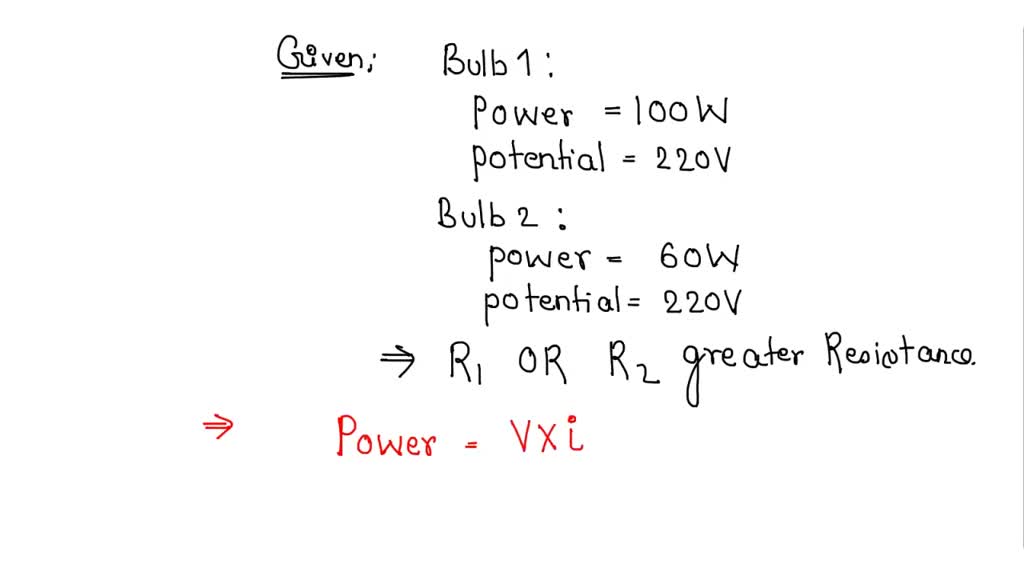 Given; Bulb 1 :
Power = 100W
potential = 220V
Bulb 2 :
power = 60W
potential = 220V
⇒ R1 OR R2 greater Resistance.
⇒ Power = VXi